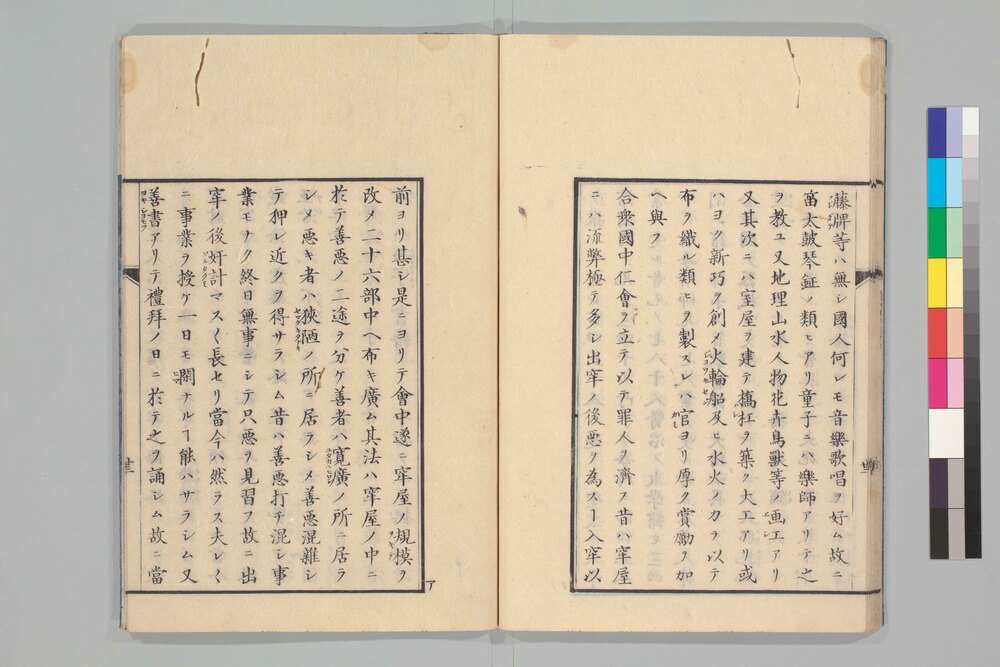 藤牌等ハ無シ國人何レモ音樂歌唱ヲ好ム故ニ
笛太鼓琴鉦ノ類ヒアリ童子ニハ樂師アリテ之
ヲ教ユ又地理山水人物花卉鳥獸等ノ画工アリ
又其次ニハ室屋ヲ建テ橋杠ヲ築ク大工アリ或
ハヨク新巧ヲ創メ火輪船及ヒ水火ノカヲ以テ
布ヲ織ル類ヒヲ製スレハ官ヨリ厚ク賞勵ヲ加
ヘ與フ
合衆國中仁會ヲ立テ以テ罪人ヲ濟フ昔ハ窂屋
ニハ流弊極テ多シ出窂ノ後悪ヲ為スヿ入窂以
前ヨリ甚シ是ニヨリテ會中遂ニ窂屋ノ規模ヲ
改メ二十六部中ヘ布キ廣ム其法ハ窂屋ノ中ニ
於テ善悪ノ二途ヲ分ケ善者ハ寛廣ノ所ニ居ラ
シメ悪キ者ハ狹陋ノ所ニ居ラシメ善悪混雜シ
テ押レ近クヲ得サラシム昔ハ善悪打チ混シ事
業モナク終日無事ニシテ只悪ヲ見習フ故ニ出
窂ノ後奸計マス〱長セリ當今ハ然ラス夫レ〱
ニ事業ヲ授ケ一日モ閑ナルヿ能ハサラシム又
善書アリテ禮拜ノ日ニ於テ之ヲ誦シム故ニ當